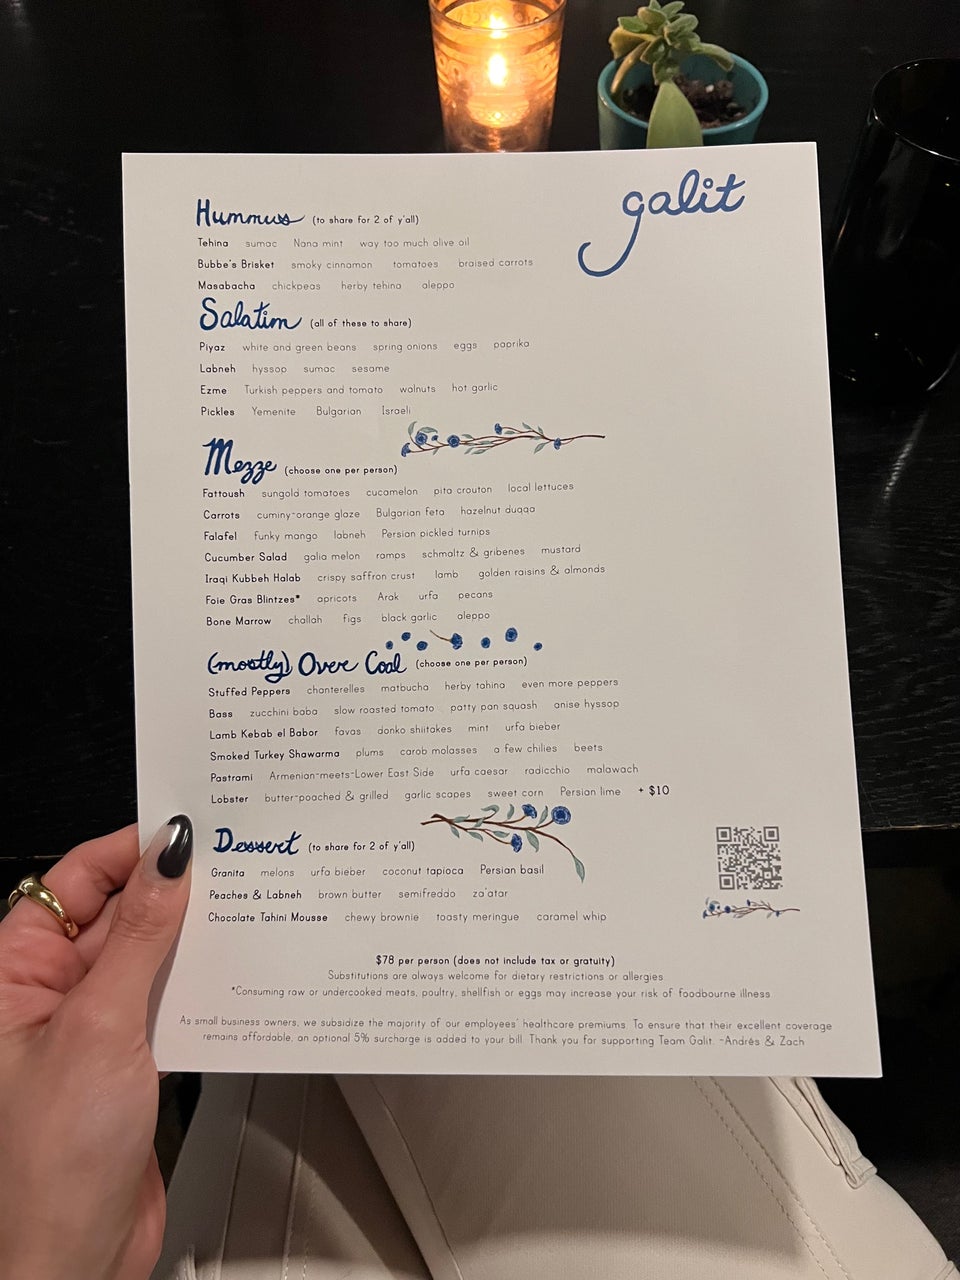 galit
Hummus (to share for 2 of y'all)
Tehina sumac Nana mint way too much olive oil
Bubbe's Brisket smoky cinnamon tomatoes braised carrots
Masabacha chickpeas herby tehina aleppo
Salatim (all of these to share)
Piyaz white and green beans spring onions eggs paprika
Labneh hyssop sumac sesame
Ezme Turkish peppers and tomato walnuts hot garlic
Pickles Yemenite Bulgarian Israeli
Mezze (choose one per person)
Fattoush sungold tomatoes cucamelon pita crouton local lettuces
Carrots cuminy-orange glaze Bulgarian feta hazelnut duqqa
Falafel funky mango labneh Persian pickled turnips
Cucumber Salad galia melon ramps schmaltz & gribenes mustard
Iraqi Kubbeh Halab crispy saffron crust lamb golden raisins & almonds
Foie Gras Blintzes* apricots Arak urfa pecans
Bone Marrow challah figs black garlic aleppo
(mostly) Over Coal (choose one per person)
Stuffed Peppers chanterelles matbucha herby tahina even more peppers
Bass zucchini baba slow roasted tomato patty pan squash anise hyssop
Lamb Kebab el Babor favas donko shiitakes mint urfa bieber
Smoked Turkey Shawarma plums carob molasses a few chilies beets
Pastrami Armenian-meets-Lower East Side urfa caesar radicchio malawach
Lobster butter-poached & grilled garlic scapes sweet corn Persian lime + $10
Dessert (to share for 2 of y'all)
Granita melons urfa bieber coconut tapioca Persian basil
Peaches & Labneh brown butter semifreddo za'atar
Chocolate Tahini Mousse chewy brownie toasty meringue caramel whip
$78 per person (does not include tax or gratuity)
Substitutions are always welcome for dietary restrictions or allergies
*Consuming raw or undercooked meats, poultry, shellfish or eggs may increase your risk of foodbourne illness
As small business owners, we subsidize the majority of our employees' healthcare premiums. To ensure that their excellent coverage
remains affordable, an optional 5% surcharge is added to your bill. Thank you for supporting Team Galit. -Andrés & Zach